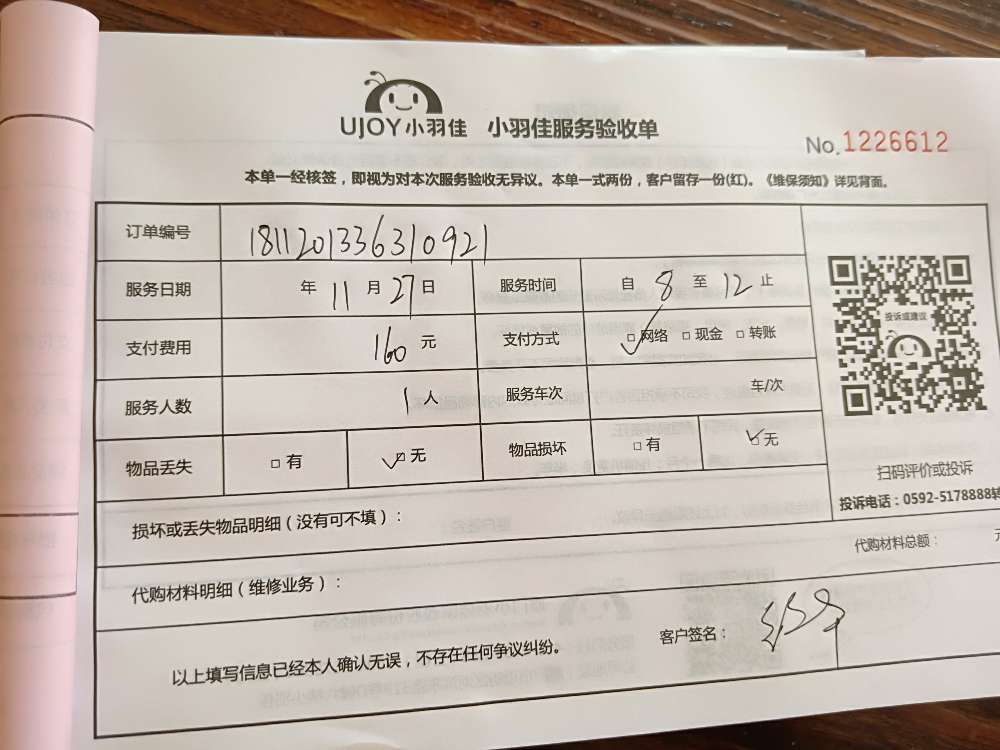 UJOY小羽佳 小羽佳服务验收单
No.1226612
本单一经核签，即视为对本次服务验收无异议。本单一式两份，客户留存一份(红)。《维保须知》详见背面。
订单编号 1811201336310921
服务日期 年 11 月 27 日 服务时间 自 8 至 12 止
支付费用 160 元 支付方式 □网络 □现金 □转账
服务人数 1 人 服务车次 车/次
物品丢失 □有 □无 物品损坏 □有 □无
投诉或建议
扫码评价或投诉
投诉电话：0592-5178888转
损坏或丢失物品明细（没有可不填）：
代购材料明细（维修业务）：
代购材料总额：
以上填写信息已经本人确认无误，不存在任何争议纠纷。
客户签名：